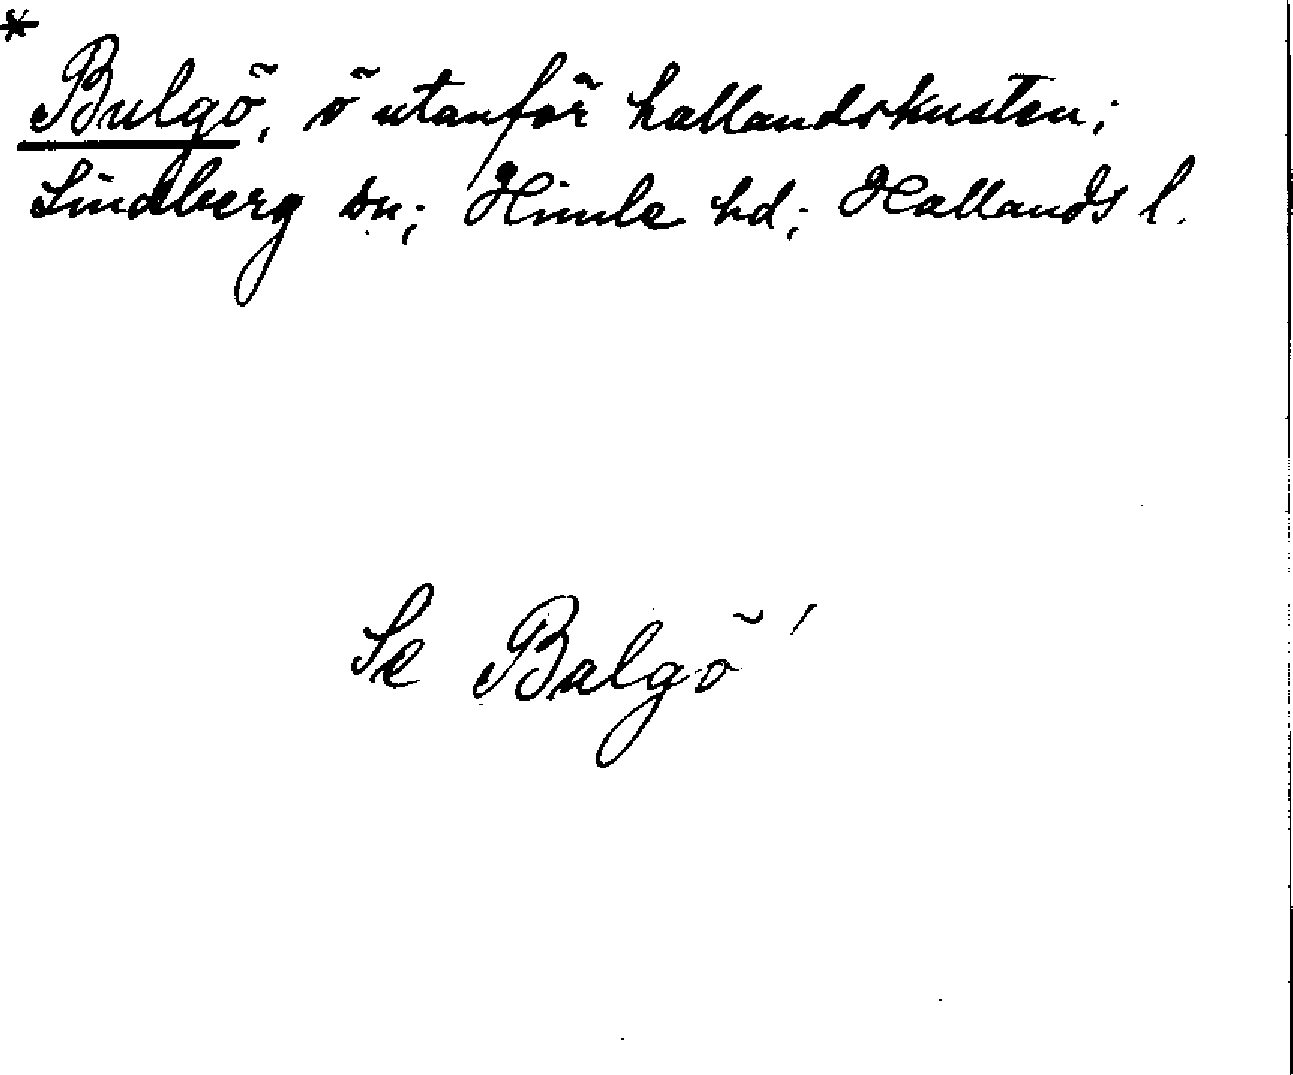 *
Bulgö, ö utanför hallandskusten;
Lindberg sn; Himle hd; Hallands l.
Se Balgö!